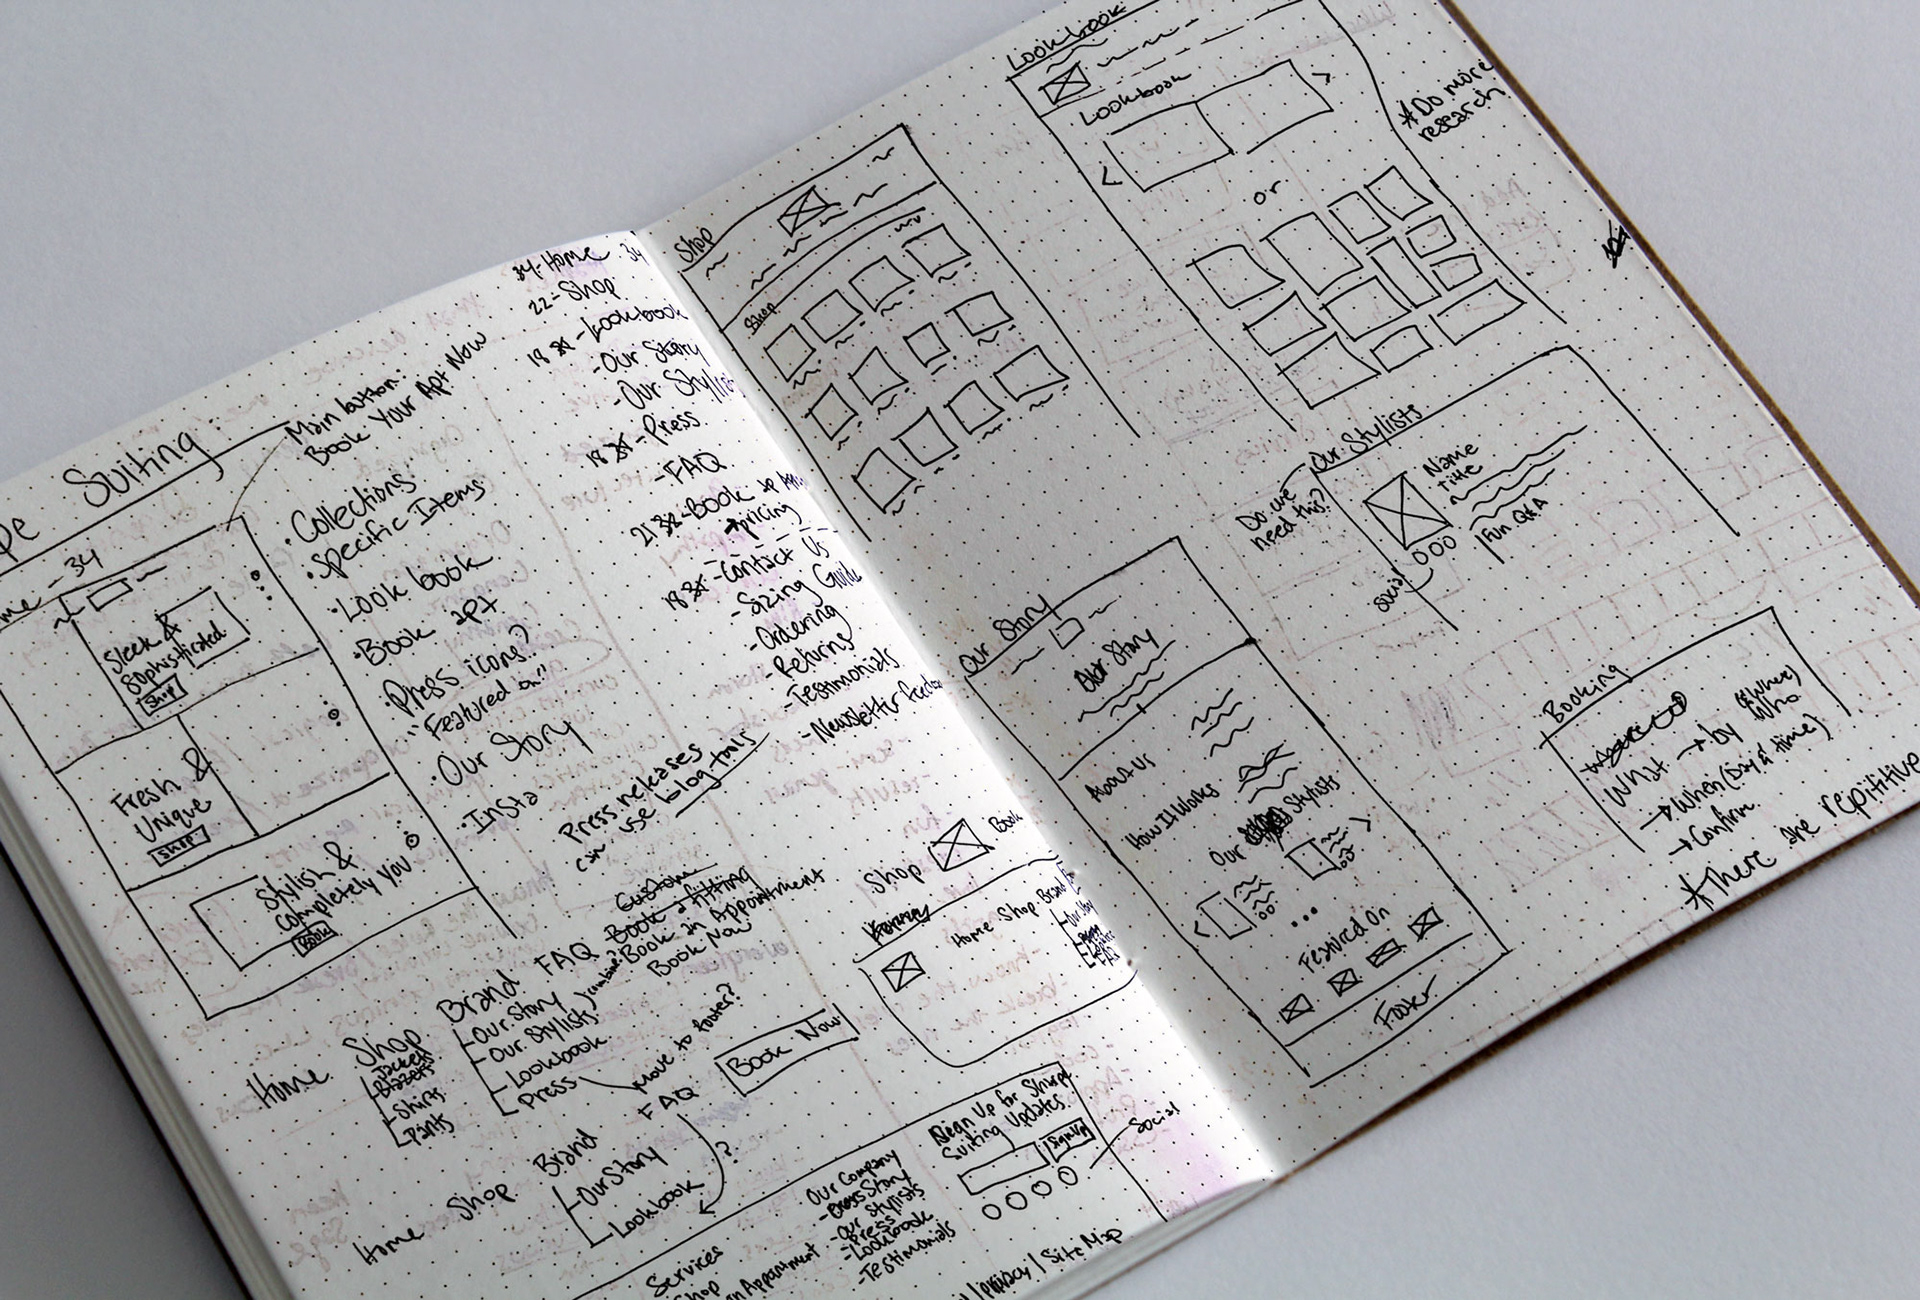 Suiting
Main button:
Book Your Apt Now
- 34
Sleek &
Sophisticated
Ship
Fresh &
Unique
Shop
Stylish &
Completely You
Book
• Collections
• Specific Items
• Look book
• Book apt
• Press icons?
"Featured on"
• Our Story
• Insta
Press releases
can use blog tools
34 - Home 34
22 - Shop
18 - Lookbook
- Our Story
- Our Stylist
18 - Press
- FAQ
21 - Book
pricing
18 - Contact Us
- Sizing Guide
- Ordering
- Returns
- Testimonials
- Newsletter
Home
Shop
Jackets
Blazers
Shirts
Pants
Brand
Our Story
Our Stylist
Lookbook
Press
combine?
FAQ
Custom
Book a fitting
Book an Appointment
Book Now
move to footer?
Book Now
Home
Shop
Brand
Our Story
Lookbook
FAQ
?
Shop
Book
Home Shop Brand
FAQ
Sign Up for Sharpe
Suiting Updates
Sign Up
Social
Services
Shop
an Appointment
Our Company
Story
- Our Stylists
- Press
- Lookbook
- Testimonials
| Privacy | Site Map
Shop
Shop
Lookbook
Lookbook
or
*Do more
research
Our Stylists
Do we
need this?
Name
Title
Fun Q&A
social
Our Story
Our Story
About Us
How It Works
Our Stylists
Featured On
Footer
Booking
What → by Who
(& Where)
→ When (Day & time)
→ Confirm
*There are repititive